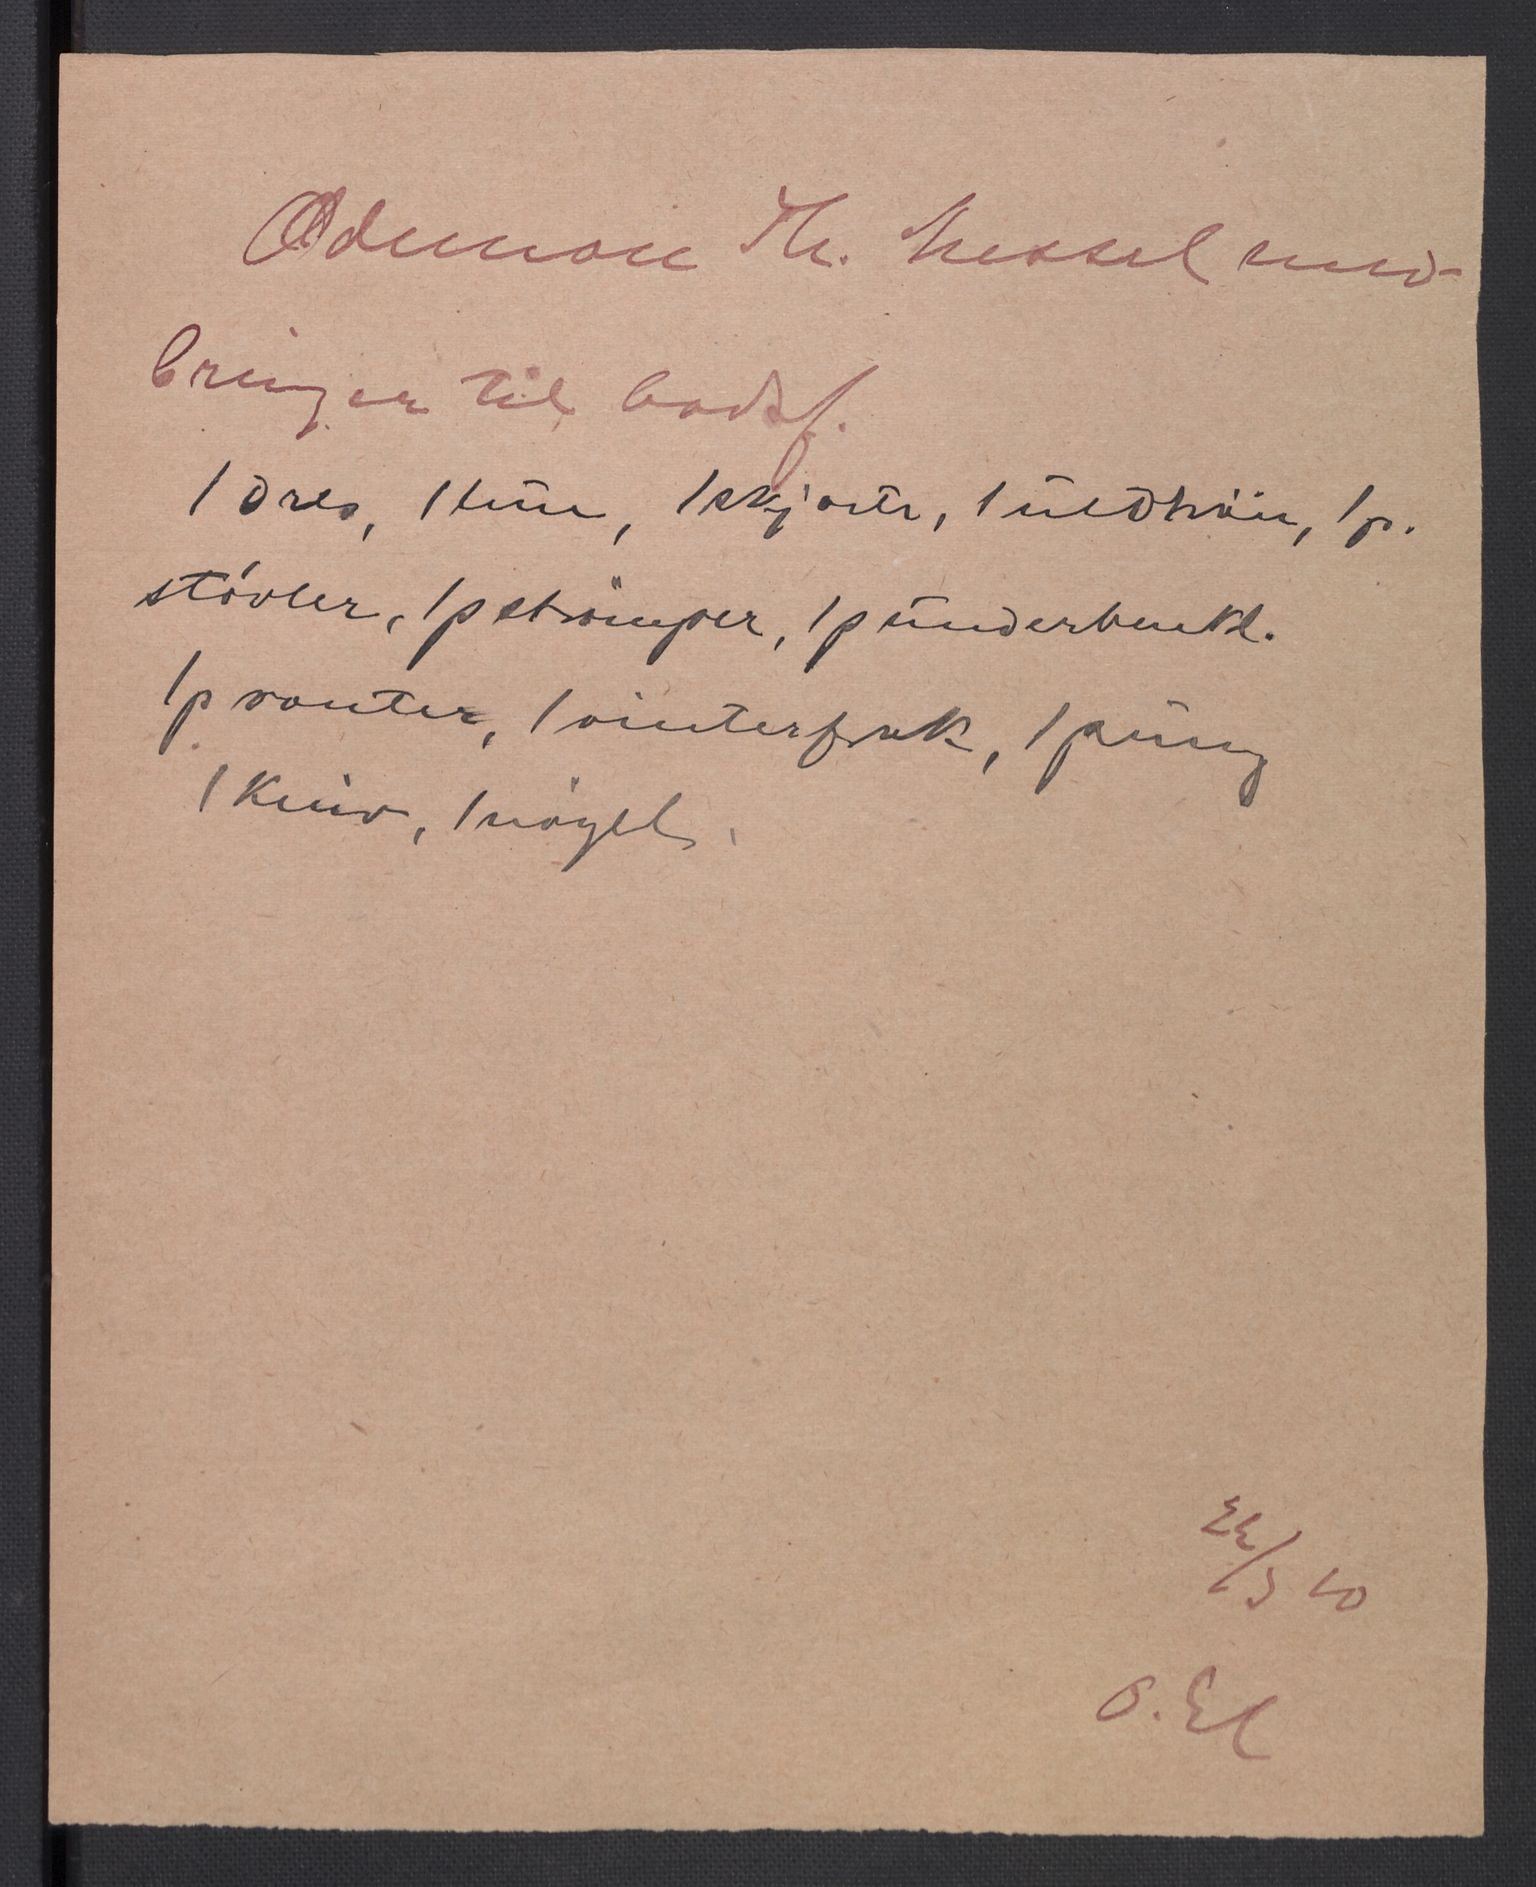 Ødemon Th. Nessel med-
bringer til bodsf.
1 dres, 1 lue, 1 skjorte, 1 uldtröie, 1 p.
støvler, 1 p strömper, 1 p underbenkl.
1 p vanter, 1 vinterfrak, 1 pung
1 Kniv, 1 nögel.
22/3 20
O. El